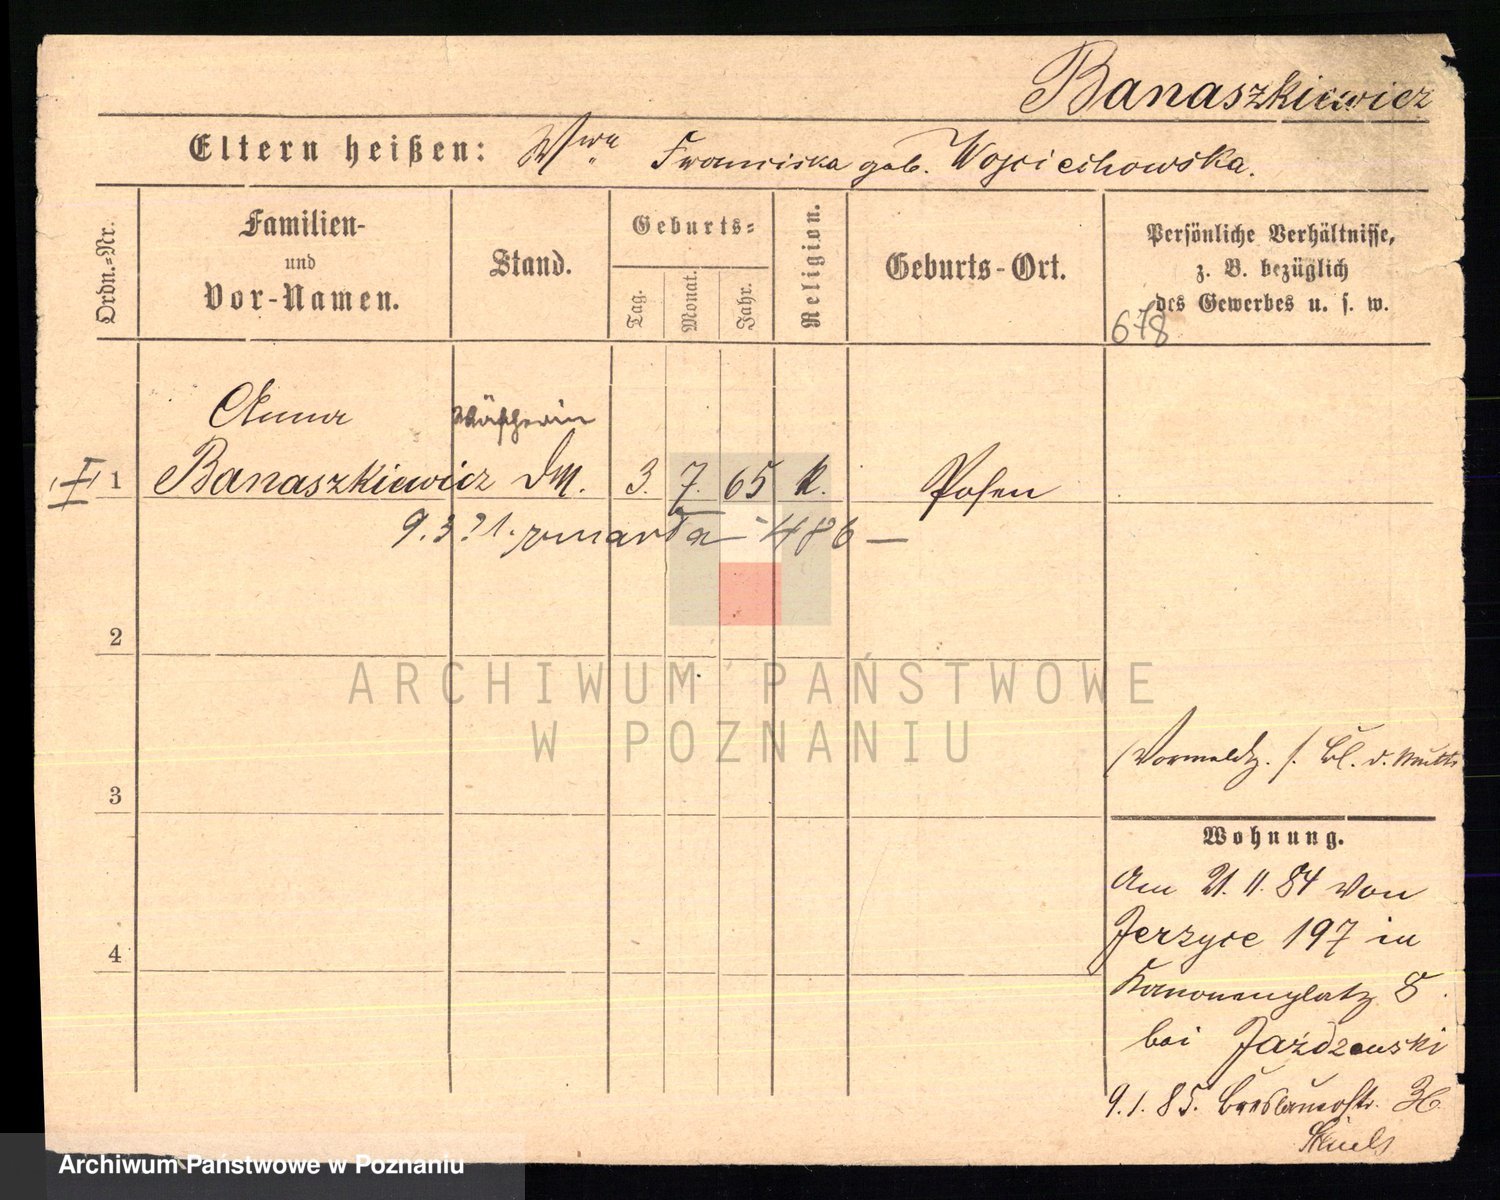 Banaszkiewicz
Eltern heißen: Wwe Franciska geb. Wojciechowska.
Ordn.-Nr.
Familien-
und
Vor-Namen.
Stand.
Geburts-
Tag.
Monat.
Jahr.
Religion.
Geburts-Ort.
Persönliche Verhältnisse,
z. B. bezüglich
des Gewerbes u. s. w.
678
Anna Wäscherin
I 1 Banaszkiewicz Dm. 3. 7. 65 k. Posen
9.3.?1. zmarła - 486 —
2
ARCHIWUM PAŃSTWOWE
W POZNANIU
(Vormeldg. s. Bl. d. Mutter
3
Wohnung.
Am 21.11.84 von
Jerzyce 197 in
4
Kanonenplatz 8
bei Jażdzewski
9.1.85. Breslauerstr. 36
Archiwum Państwowe w Poznaniu